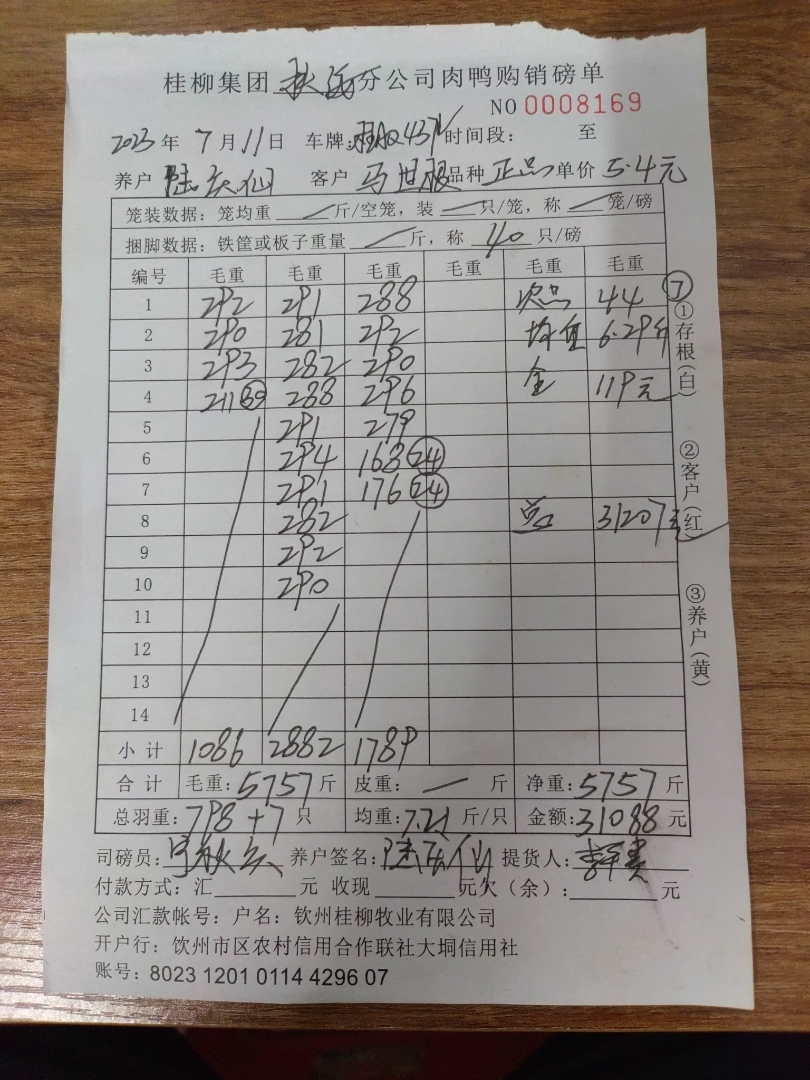 桂柳集团 分公司肉鸭购销磅单
NO 0008169
2023 年 7 月 11 日 车牌: 时间段: 至
养户 陆庆仙 客户 马世服 品种 正品 单价 5.4元
笼装数据: 笼均重 / 斤/空笼, 装 / 只/笼, 称 / 笼/磅
捆脚数据: 铁筐或板子重量 / 斤, 称 40 只/磅
编号 毛重 毛重 毛重 毛重 毛重 毛重
1 292 291 288 次品 44 ⑦
2 290 281 292 均重 6.29斤
3 293 282 290 金 119元
4 211 288 296
5 291 279
6 294 168 24
7 291 176 24
8 282 总 31207元
9 292
10 290
11
12
13
14
小计 1086 2882 1789
合计 毛重: 5757 斤 皮重: / 斤 净重: 5757 斤
总羽重: 798+7 只 均重: 7.21 斤/只 金额: 31088 元
司磅员: 养户签名: 陆庆仙 提货人:
付款方式: 汇 元 收现 元欠(余): 元
公司汇款帐号: 户名: 钦州桂柳牧业有限公司
开户行: 钦州市区农村信用合作联社大垌信用社
账号: 8023 1201 0114 4296 07
①存根(白)
②客户(红)
③养户(黄)